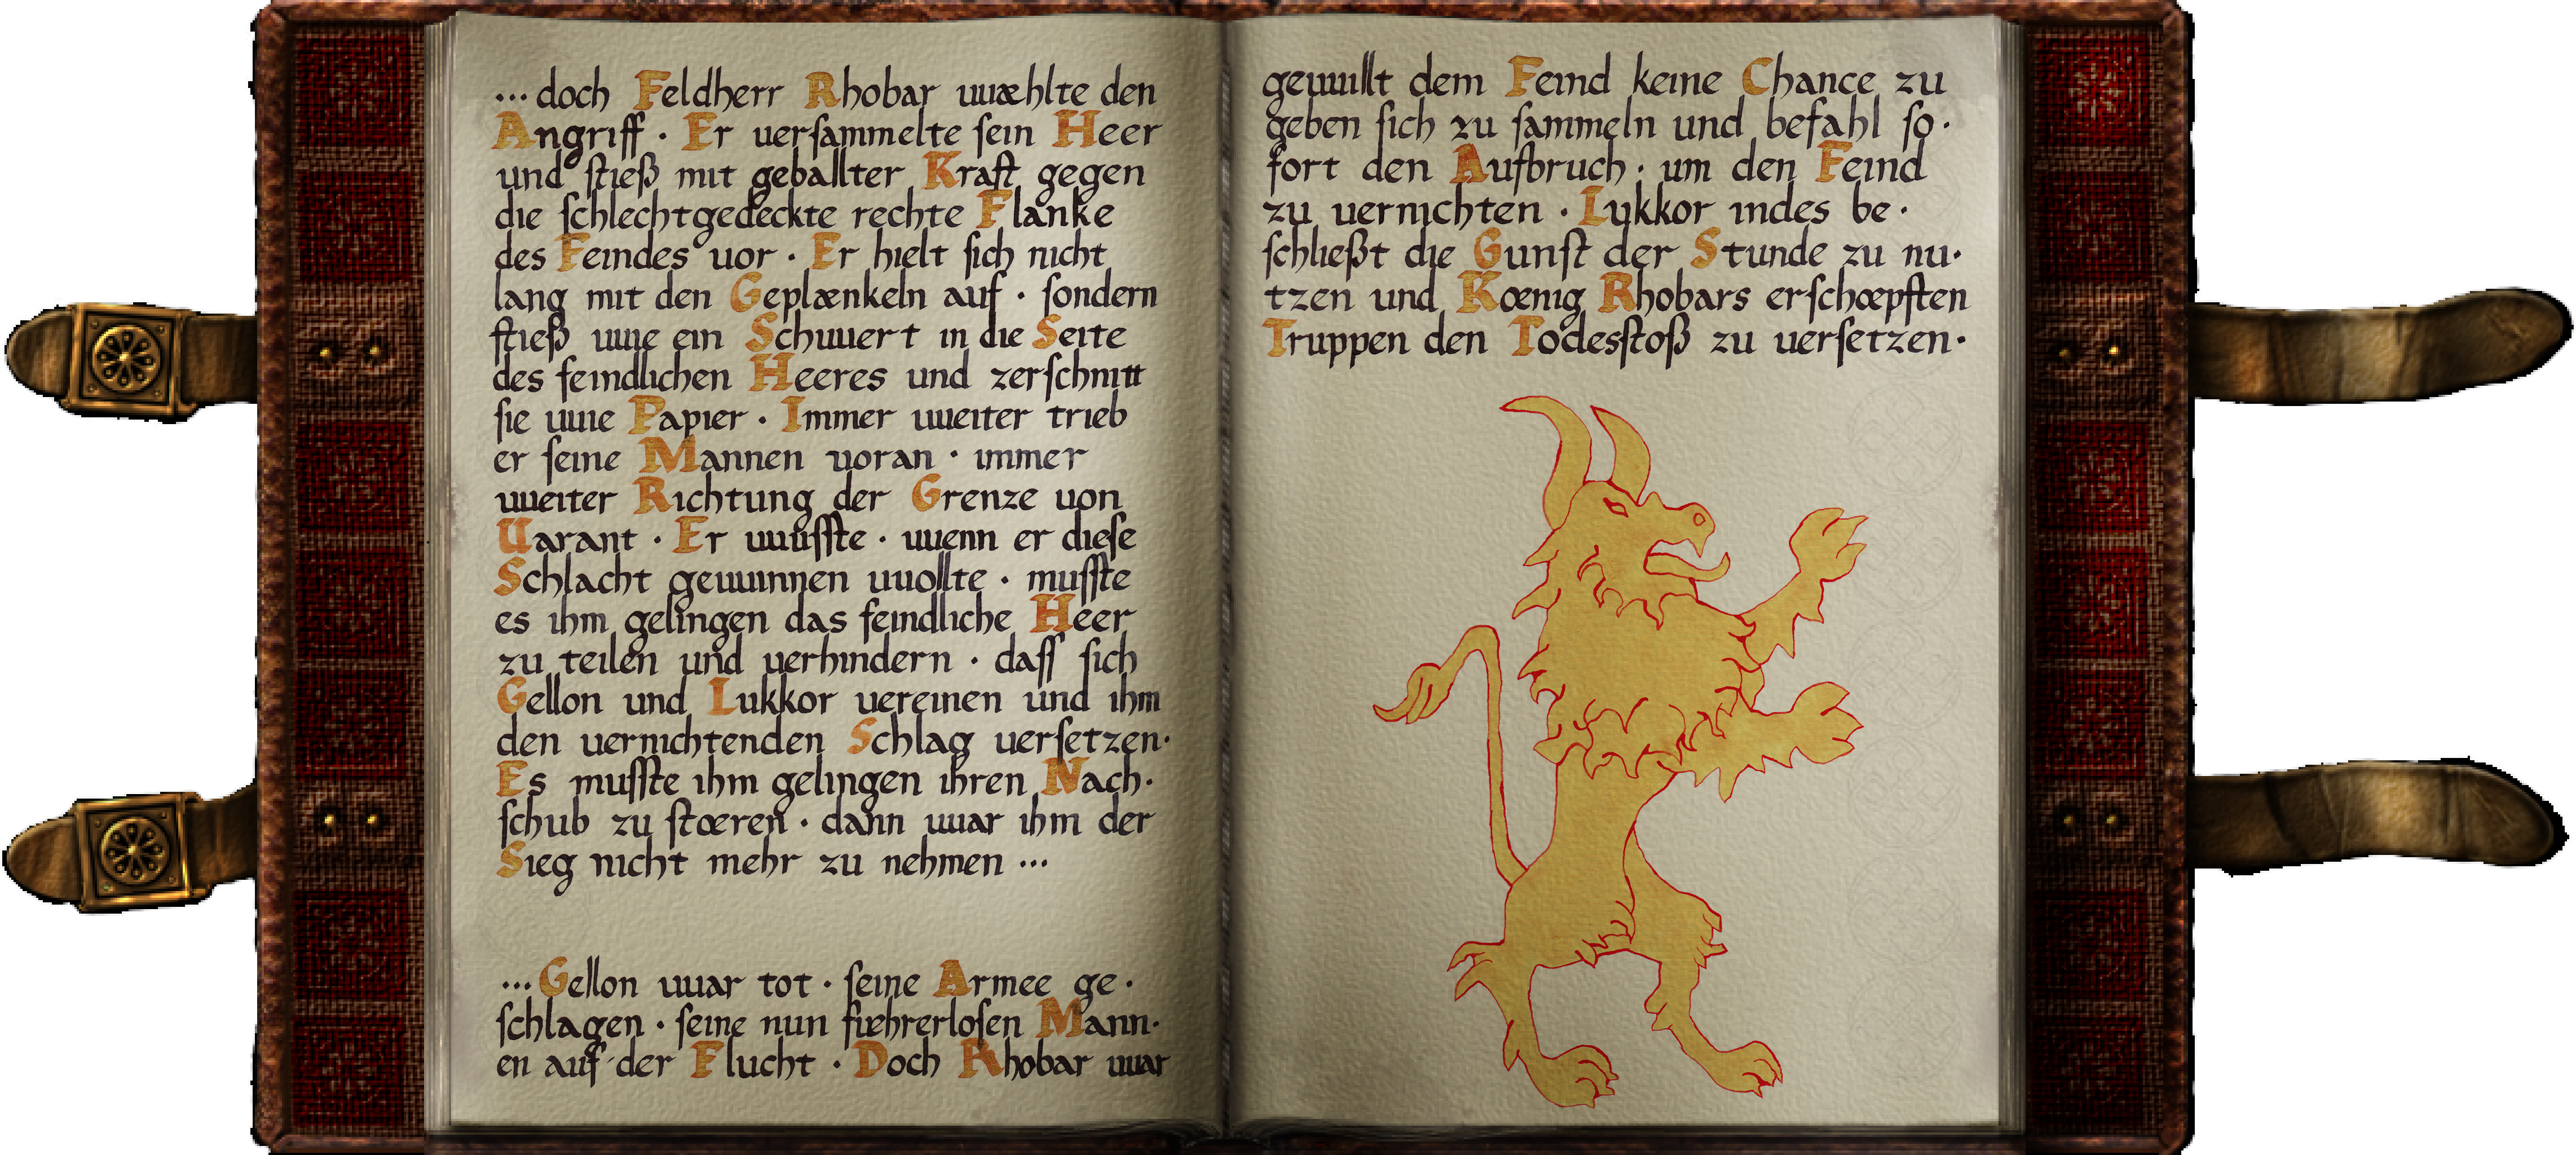 ... doch Feldherr Rhobar wæhlte den
Angriff · Er versammelte sein Heer
und stieß mit geballter Kraft gegen
die schlechtgedeckte rechte Flanke
des Feindes vor · Er hielt sich nicht
lang mit den Geplænkeln auf · sondern
stieß wie ein Schwert in die Seite
des feindlichen Heeres und zerschnitt
sie wie Papier · Immer weiter trieb
er seine Mannen voran · immer
weiter Richtung der Grenze von
Varant · Er wusste · wenn er diese
Schlacht gewinnen wollte · musste
es ihm gelingen das feindliche Heer
zu teilen und verhindern · dass sich
Gellon und Lukkor vereinen und ihm
den vernichtenden Schlag versetzen·
Es musste ihm gelingen ihren Nach·
schub zu stœren · dann war ihm der
Sieg nicht mehr zu nehmen ...
... Gellon war tot · seine Armee ge·
schlagen · seine nun fuehrerlosen Mann·
en auf der Flucht · Doch Rhobar war
gewillt dem Feind keine Chance zu
geben sich zu sammeln und befahl so·
fort den Aufbruch · um den Feind
zu vernichten · Lukkor indes be·
schließt die Gunst der Stunde zu nu·
tzen und Kœnig Rhobars erschœpften
Truppen den Todesstoß zu versetzen·